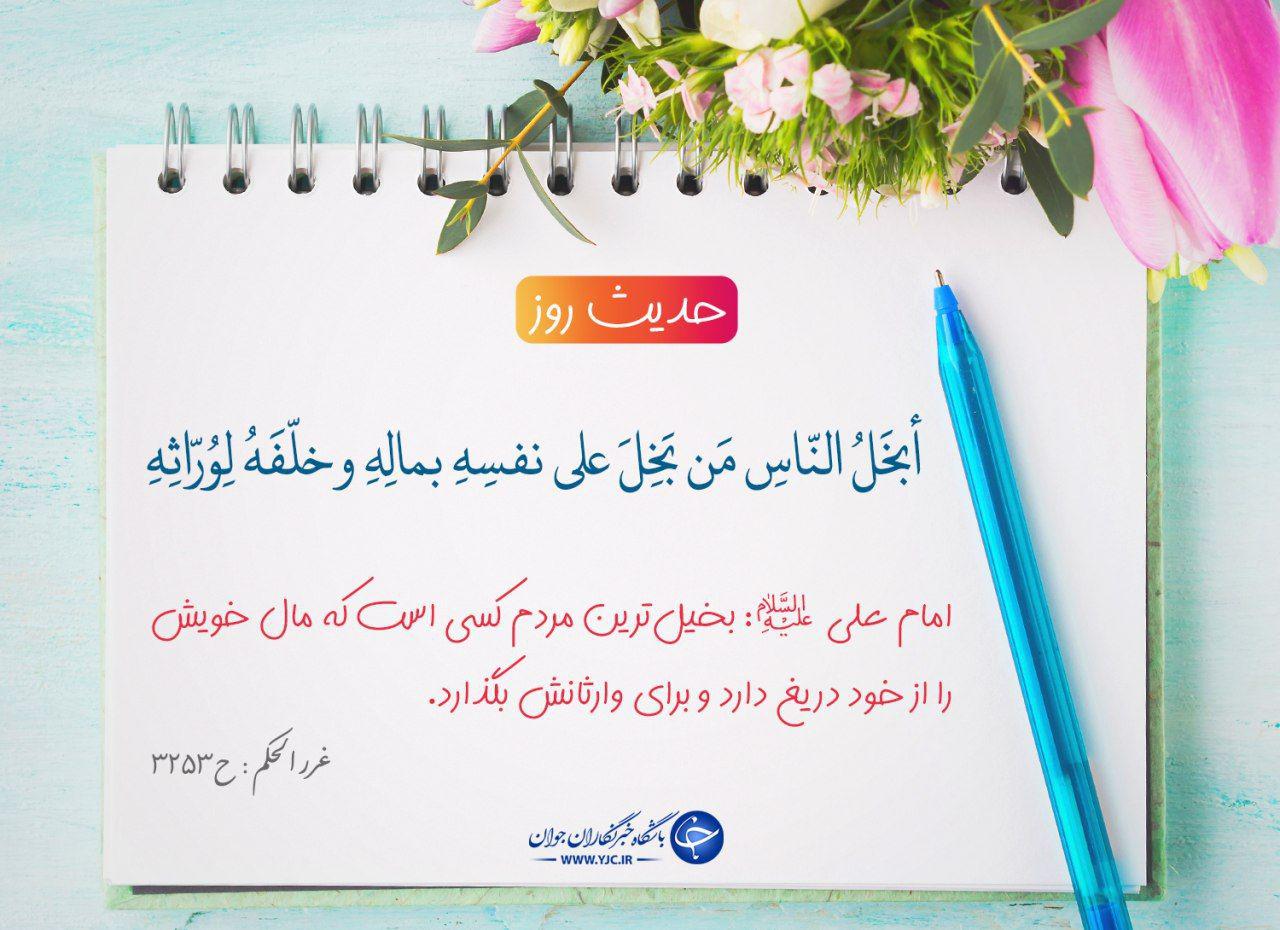 حدیث روز
أبخَلُ النّاسِ مَن بَخِلَ علی نفسِهِ بمالِهِ و خلّفَهُ لِوُرّاثِهِ
امام علی علیه‌السلام: بخیل‌ترین مردم کسی است که مال خویش
را از خود دریغ دارد و برای وارثانش بگذارد.
غررالحکم: ح۳۲۵۳
باشگاه خبرنگاران جوان
WWW.YJC.IR